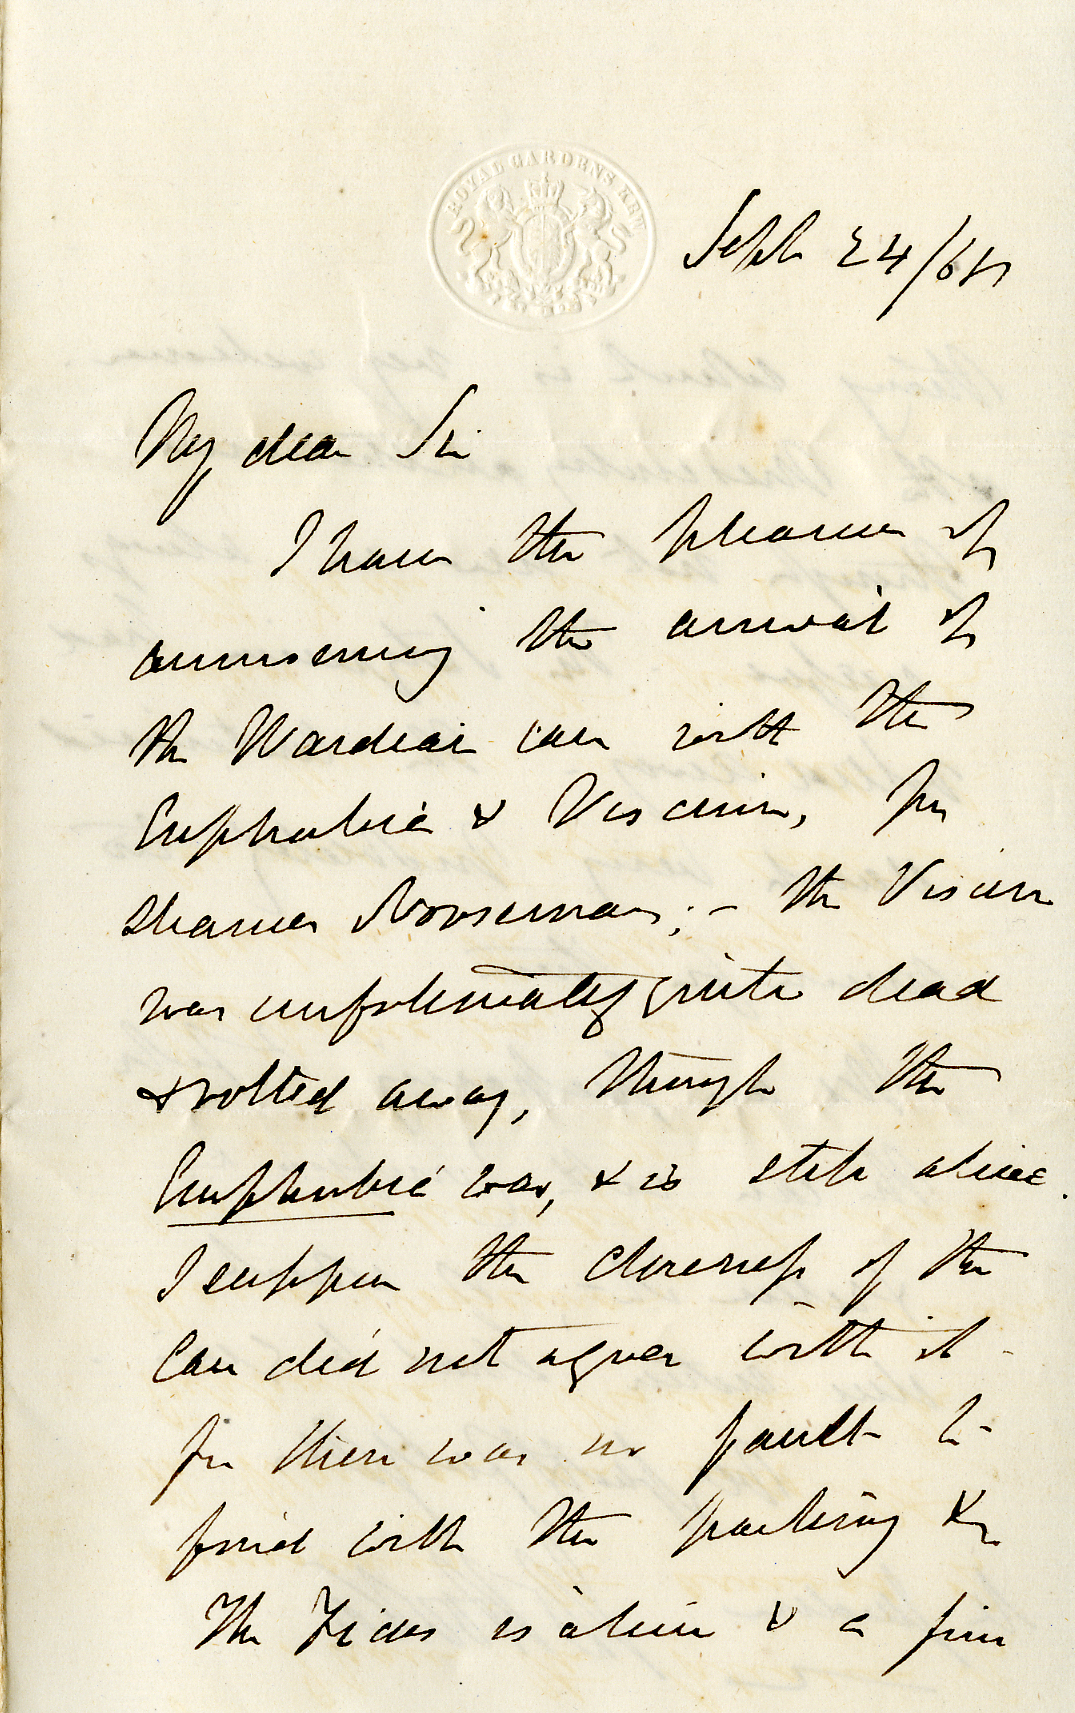 ROYAL GARDENS KEW
Sept 24/65
My dear Sir
I have the pleasure of
announcing the arrival of
the Wardian case with the
Euphorbia & Viscum, per
steamer Norseman; – the Viscum
was unfortunately quite dead
& rotted away, though the
Euphorbia was, & is still alive.
I suppose the closeness of the
Case did not agree with it –
for there was no fault to
find with the packing &c
The is alive & a fine